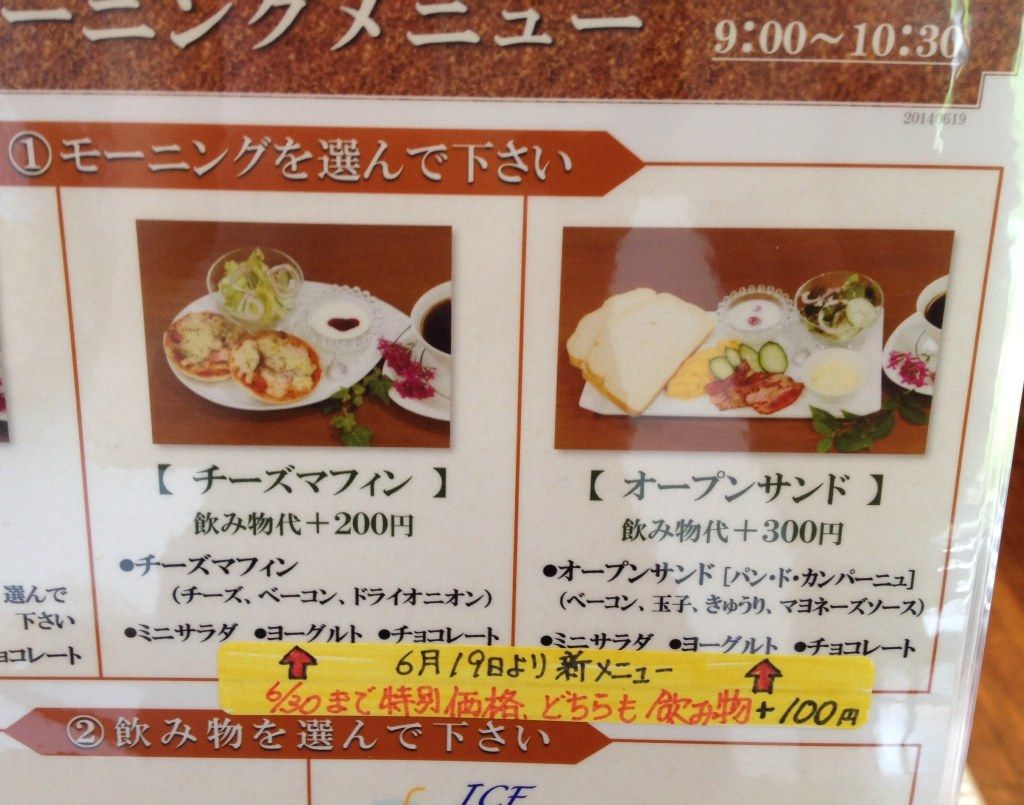 ーニングメニュー 9:00～10:30
20140619
①モーニングを選んで下さい
【 チーズマフィン 】
飲み物代＋200円
●チーズマフィン
（チーズ、ベーコン、ドライオニオン）
●ミニサラダ ●ヨーグルト ●チョコレート
【 オープンサンド 】
飲み物代＋300円
●オープンサンド［パン・ド・カンパーニュ］
（ベーコン、玉子、きゅうり、マヨネーズソース）
●ミニサラダ ●ヨーグルト ●チョコレート
選んで
下さい
ョコレート
6月19日より新メニュー
6/30まで特別価格、どちらも飲み物+100円
②飲み物を選んで下さい
ICE